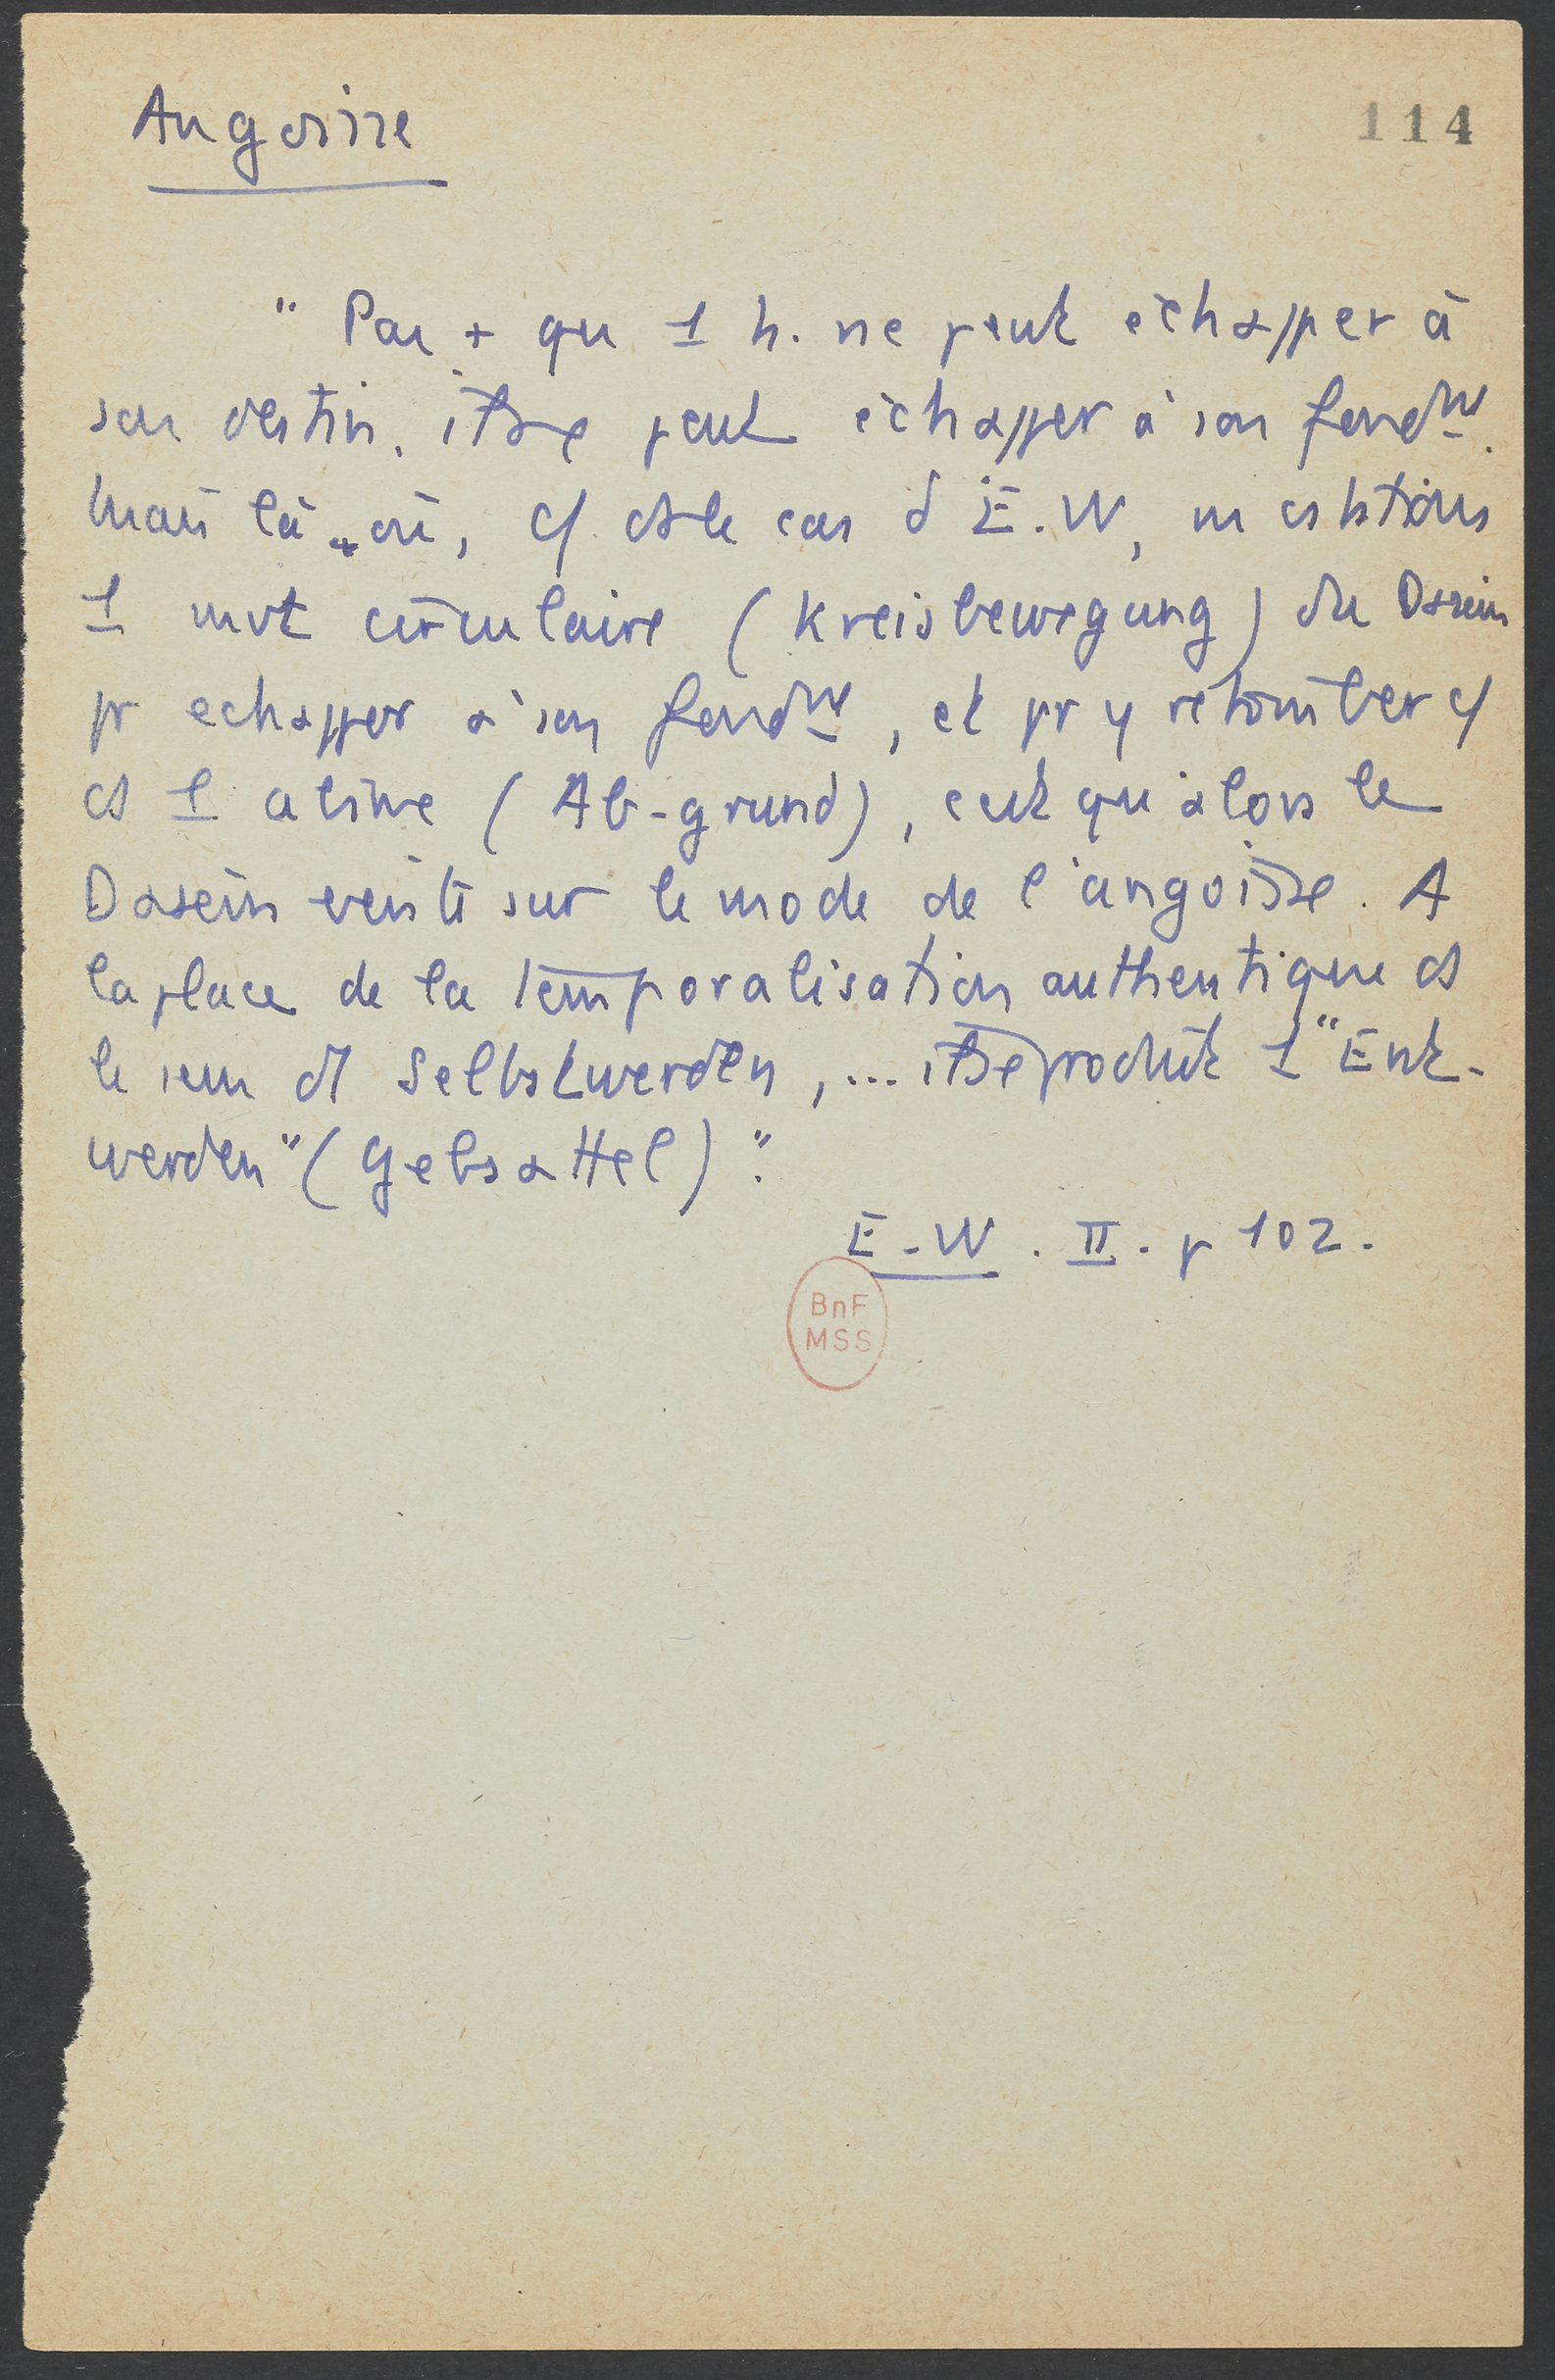 Angoisse
114
" Pas + qu 1 h. ne peut échapper à
son destin, il ne peut échapper à son fond<sup>mt</sup>.
Mais là où, c/ ds le cas d'E.W, ns assistons
1 mvt circulaire (Kreisbewegung) du Dasein
pr echapper à son fond<sup>mt</sup>, et pr y retomber c/
ds 1 abîme (Ab-grund), c'est qu'alors le
Dasein existe sur le mode de l'angoisse. A
la place de la temporalisation authentique ds
le sens d Selbstwerden, ... il se produit 1 "Ent-
werden" (Gebsattel)."
E-W. II. p 102.
BnF
MSS